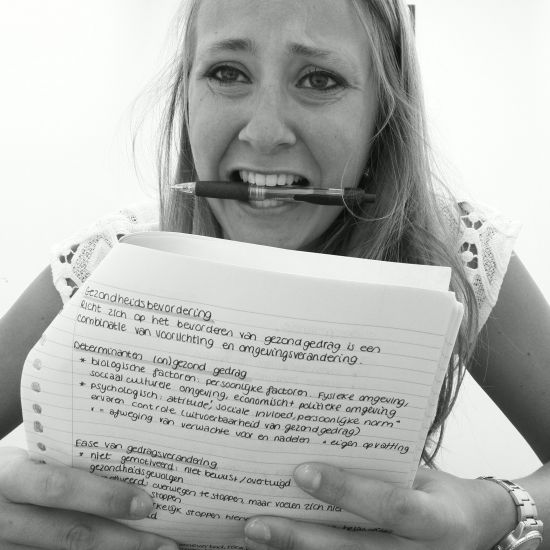 Gezondheidsbevordering
Richt zich op het bevorderen van gezond gedrag is een
combinatie van voorlichting en omgevingsverandering.
Determinanten (on)gezond gedrag
* biologische factoren, persoonlijke factoren. Fysieke omgeving,
sociaal culturele omgeving, economisch + politieke omgeving
* psychologisch: attitude, sociale invloed, persoonlijke norm*
ervaren controle (uitvoerbaarheid van gezond gedrag)
* = afweging van verwachte voor en nadelen * eigen opvatting
Fase van gedragsverandering
* niet gemotiveerd: niet bewust/overtuigd
gezondheidsgevolgen
gemotiveerd: overwegen te stoppen, maar voelen zich niet
stoppen
stoppen